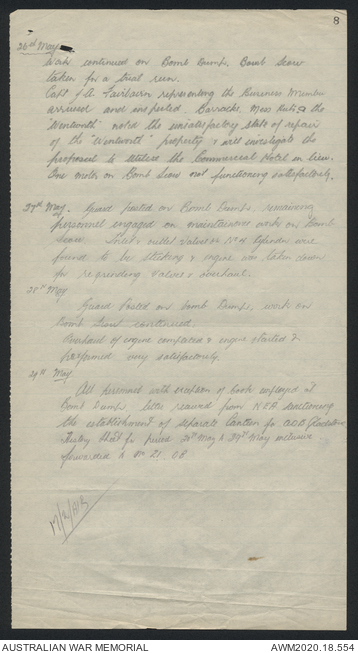 8
26th May
Work continued on Bomb Dumps. Bomb Scow
taken for a trial run.
Capt J.A. Fairbairn representing the Business Member
arrived and inspected Barracks, Mess Huts & the
"Wentworth" noted the unsatisfactory state of repairs
of the "Wentworth" property & will investigate the
proposal to utilise the Commercial Hotel in lieu.
One motor on Bomb Scow not functioning satisfactorily.
27th May. Guard posted on Bomb Dumps, remaining
personnel engaged on maintenance work on Bomb
Scow. Inlet & outlet valves in No 4 Cylinder were
found to be sticking & engine was taken down
for regrinding valves & overhaul.
28th May
Guard Posted on bomb Dumps, work on
Bomb Scow continued.
Overhaul of engine completed & engine started &
performed very satisfactorily.
29th May
All personnel with exception of cook employed at
Bomb Dumps, letter received from NEA sanctioning
the establishment of separate Canteen for AOB Gladstone.
for period 21st May to 27th May inclusive
forwarded to
AUSTRALIAN WAR MEMORIAL
AWM2020.18.554